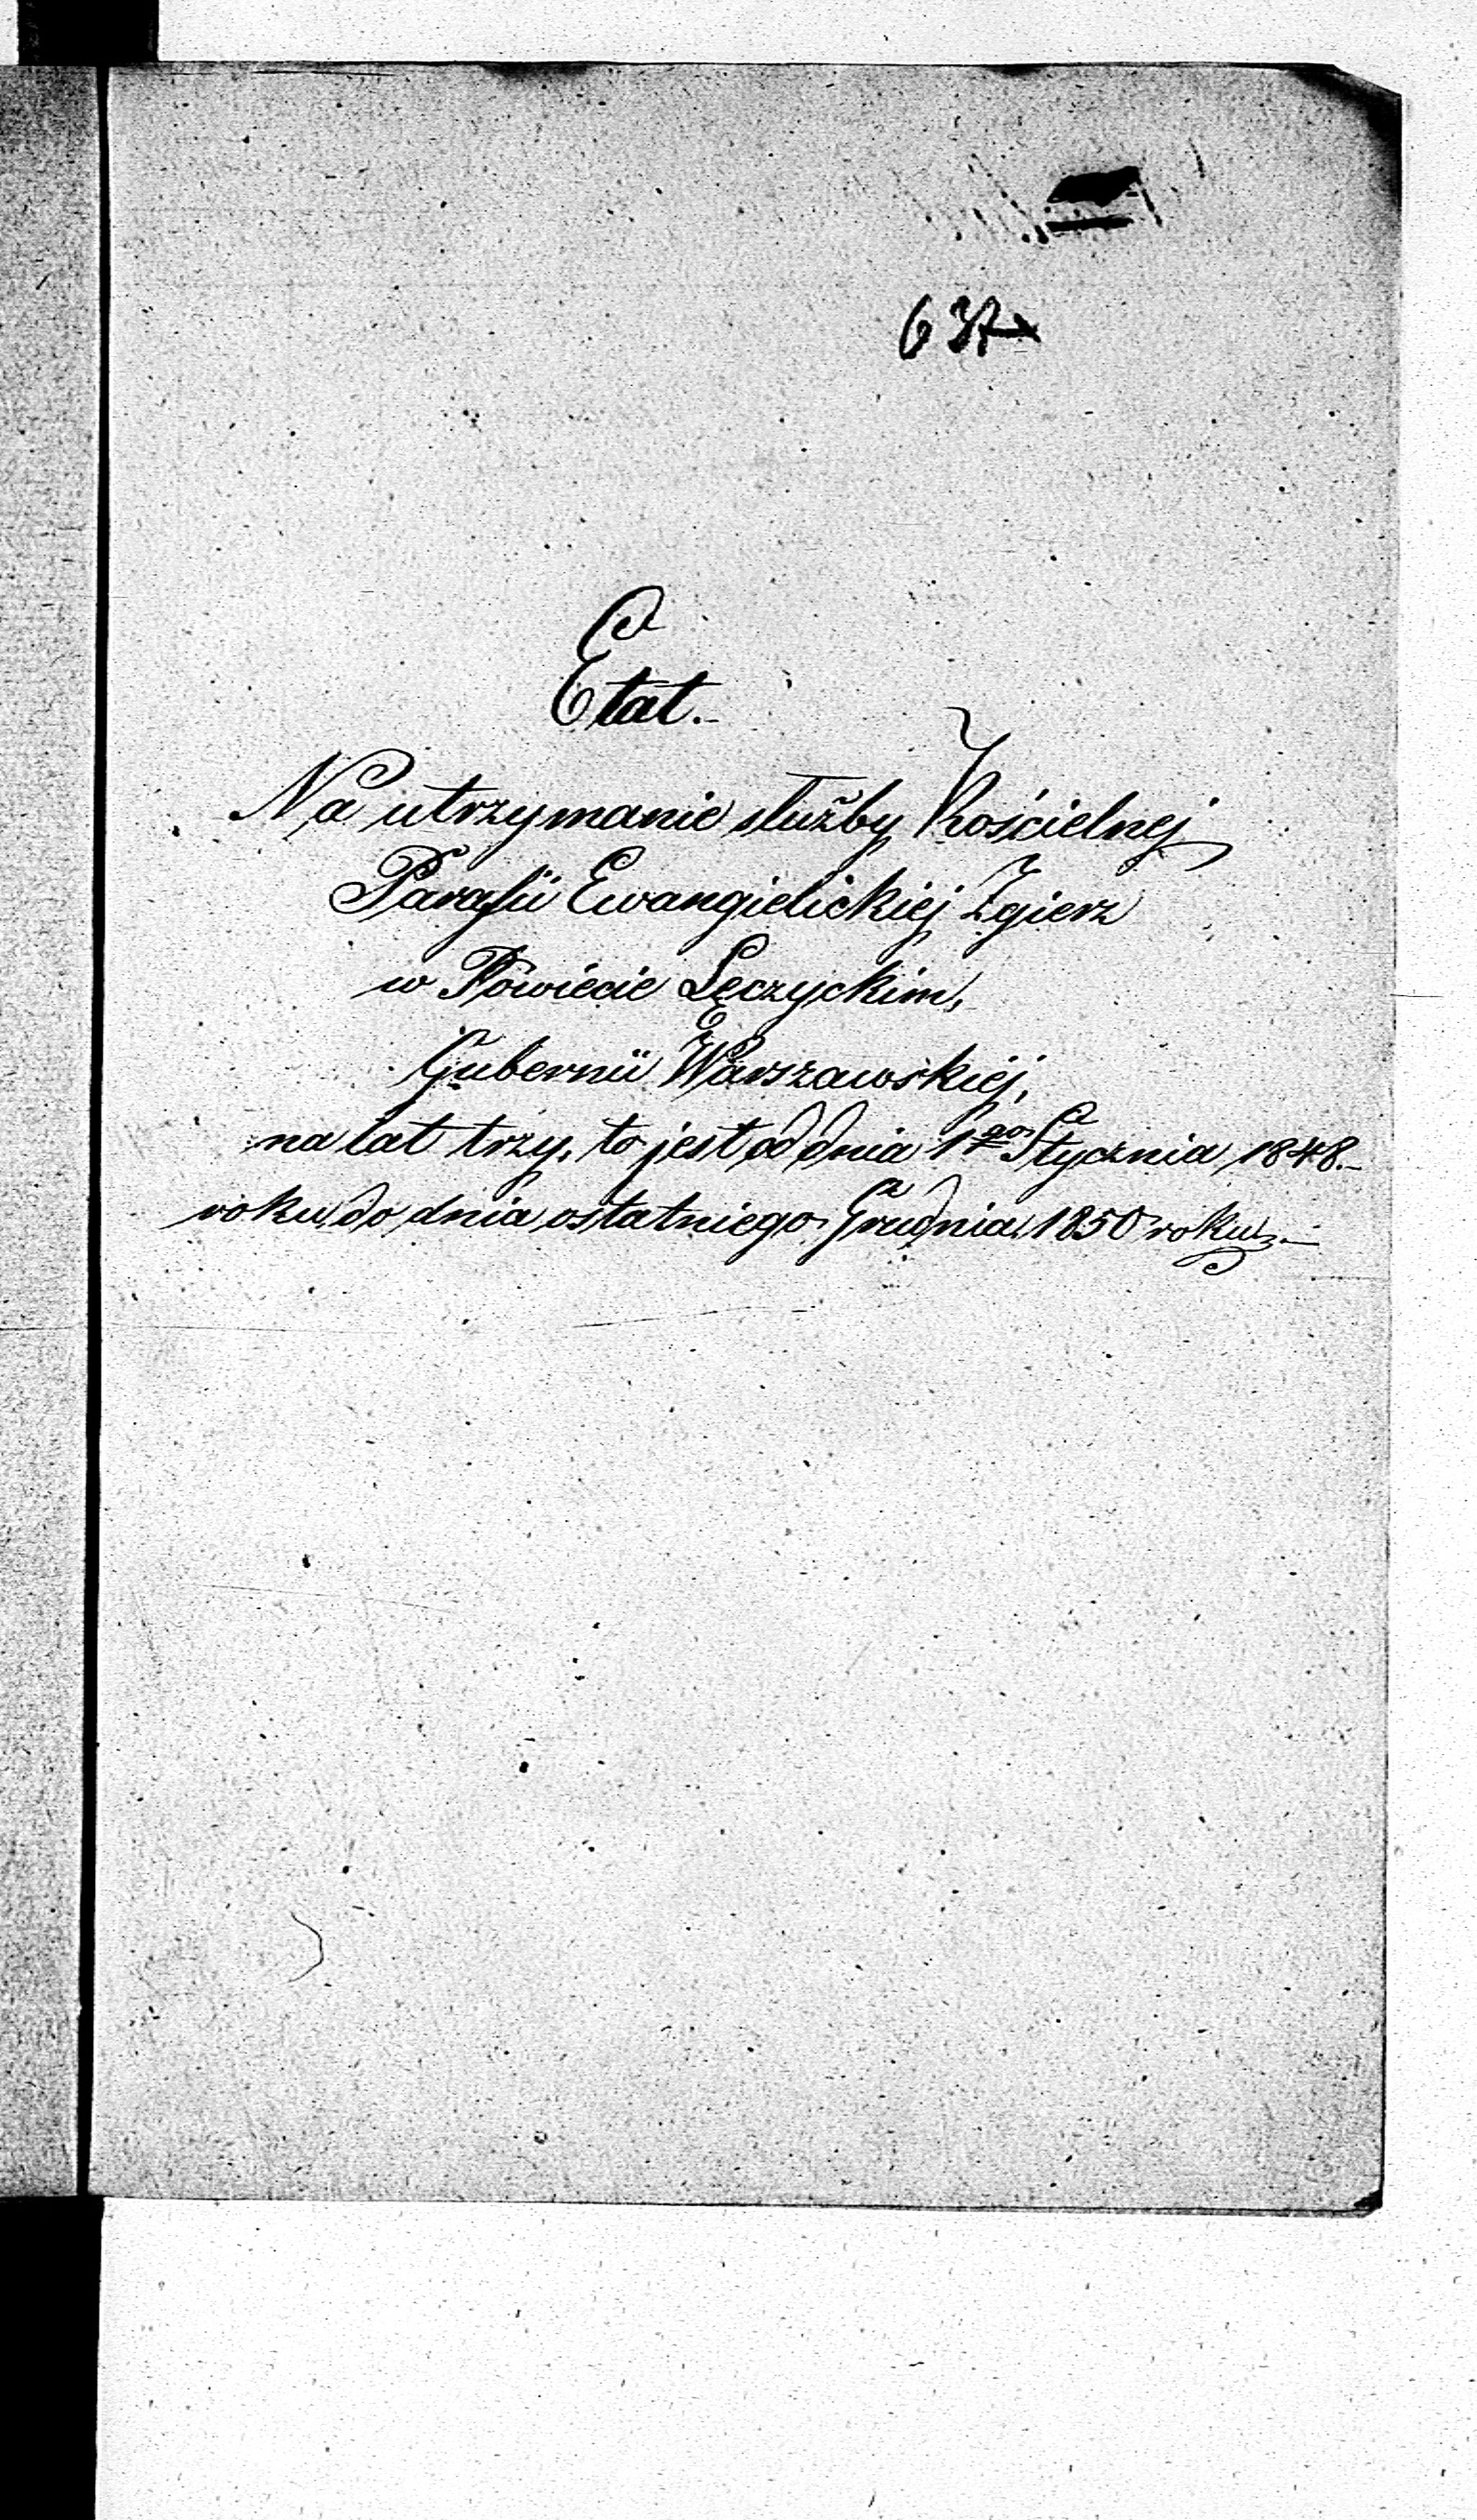 637
Etat.
Na utrzymanie służby Kościelnej
Parafii Ewangielickiej Zgierz
w Powiecie Łęczyckim,
Gubernii Warszawskiej,
na lat trzy, to jest od dnia 1go Stycznia 1848.
roku do dnia ostatniego Grudnia 1850 roku.